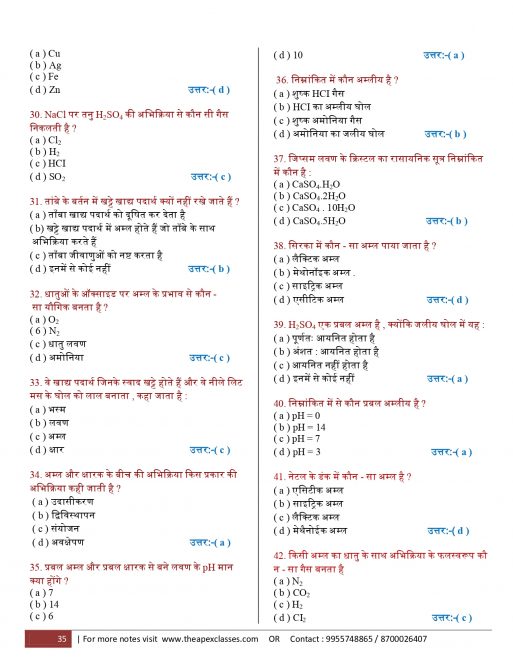 ( a ) Cu
( b ) Ag
( c ) Fe
( d ) Zn उत्तर:-( d )
30. NaCl पर तनु H₂SO₄ की अभिक्रिया से कौन सी गैस
निकलती है ?
( a ) Cl₂
( b ) H₂
( c ) HCI
( d ) SO₂ उत्तर:-( c )
31. तांबे के बर्तन में खट्टे खाद्य पदार्थ क्यों नहीं रखे जाते हैं ?
( a ) ताँबा खाद्य पदार्थ को दूषित कर देता है
( b) खट्टे खाद्य पदार्थ में अम्ल होते हैं जो ताँबे के साथ
अभिक्रिया करते हैं
( c ) ताँबा जीवाणुओं को नष्ट करता है
( d ) इनमें से कोई नहीं उत्तर:-( b )
32. धातुओं के ऑक्साइड पर अम्ल के प्रभाव से कौन -
सा यौगिक बनता है ?
( a ) O₂
( 6 ) N₂
( c ) धातु लवण
( d ) अमोनिया उत्तर:-( c )
33. वे खाद्य पदार्थ जिनके स्वाद खट्टे होते हैं और वे नीले लिट
मस के घोल को लाल बनाता , कहा जाता है :
( a ) भस्म
( b ) लवण
( c ) अम्ल
( d ) क्षार उत्तर:-( c )
34. अम्ल और क्षारक के बीच की अभिक्रिया किस प्रकार की
अभिक्रिया कही जाती है ?
( a ) उदासीकरण
( b ) द्विविस्थापन
( c ) संयोजन
( d ) अवक्षेपण उत्तर:-( a )
35. प्रबल अम्ल और प्रबल क्षारक से बने लवण के pH मान
क्या होंगे ?
( a ) 7
( b ) 14
( c ) 6
( d ) 10 उत्तर:-( a )
36. निम्नांकित में कौन अम्लीय है ?
( a ) शुष्क HCI गैस
( b ) HCI का अम्लीय घोल
( c ) शुष्क अमोनिया गैस
( d ) अमोनिया का जलीय घोल उत्तर:-( b )
37. जिप्सम लवण के क्रिस्टल का रासायनिक सूत्र निम्नांकित
में कौन है :
( a ) CaSO₄.H₂O
( b ) CaSO₄.2H₂O
( c ) CaSO₄ . 10H₂O
( d ) CaSO₄.5H₂O उत्तर:-( b )
38. सिरका में कौन - सा अम्ल पाया जाता है ?
( a ) लैक्टिक अम्ल
( b ) मेथोनॉइक अम्ल .
( c ) साइट्रिक अम्ल
( d ) एसीटिक अम्ल उत्तर:-( d )
39. H₂SO₄ एक प्रबल अम्ल है , क्योंकि जलीय घोल में यह :
( a ) पूर्णतः आयनित होता है
( b ) अंशत : आयनित होता है
( c ) आयनित नहीं होता है
( d ) इनमें से कोई नहीं उत्तर:-( a )
40. निम्नांकित में से कौन प्रबल अम्लीय है ?
( a ) pH = 0
( b ) pH = 14
( c ) pH = 7
( d ) pH = 3 उत्तर:-( a )
41. नेटल के डंक में कौन - सा अम्ल है ?
( a ) एसिटीक अम्ल
( b ) साइट्रिक अम्ल
( c ) लैक्टिक अम्ल
( d ) मेथैनोईक अम्ल उत्तर:-( d )
42. किसी अम्ल का धातु के साथ अभिक्रिया के फलस्वरूप कौ
न - सा गैस बनता है
( a ) N₂
( b ) CO₂
( c ) H₂
( d ) CI₂ उत्तर:-( c )
35 | For more notes visit www.theapexclasses.com OR Contact : 9955748865 / 8700026407